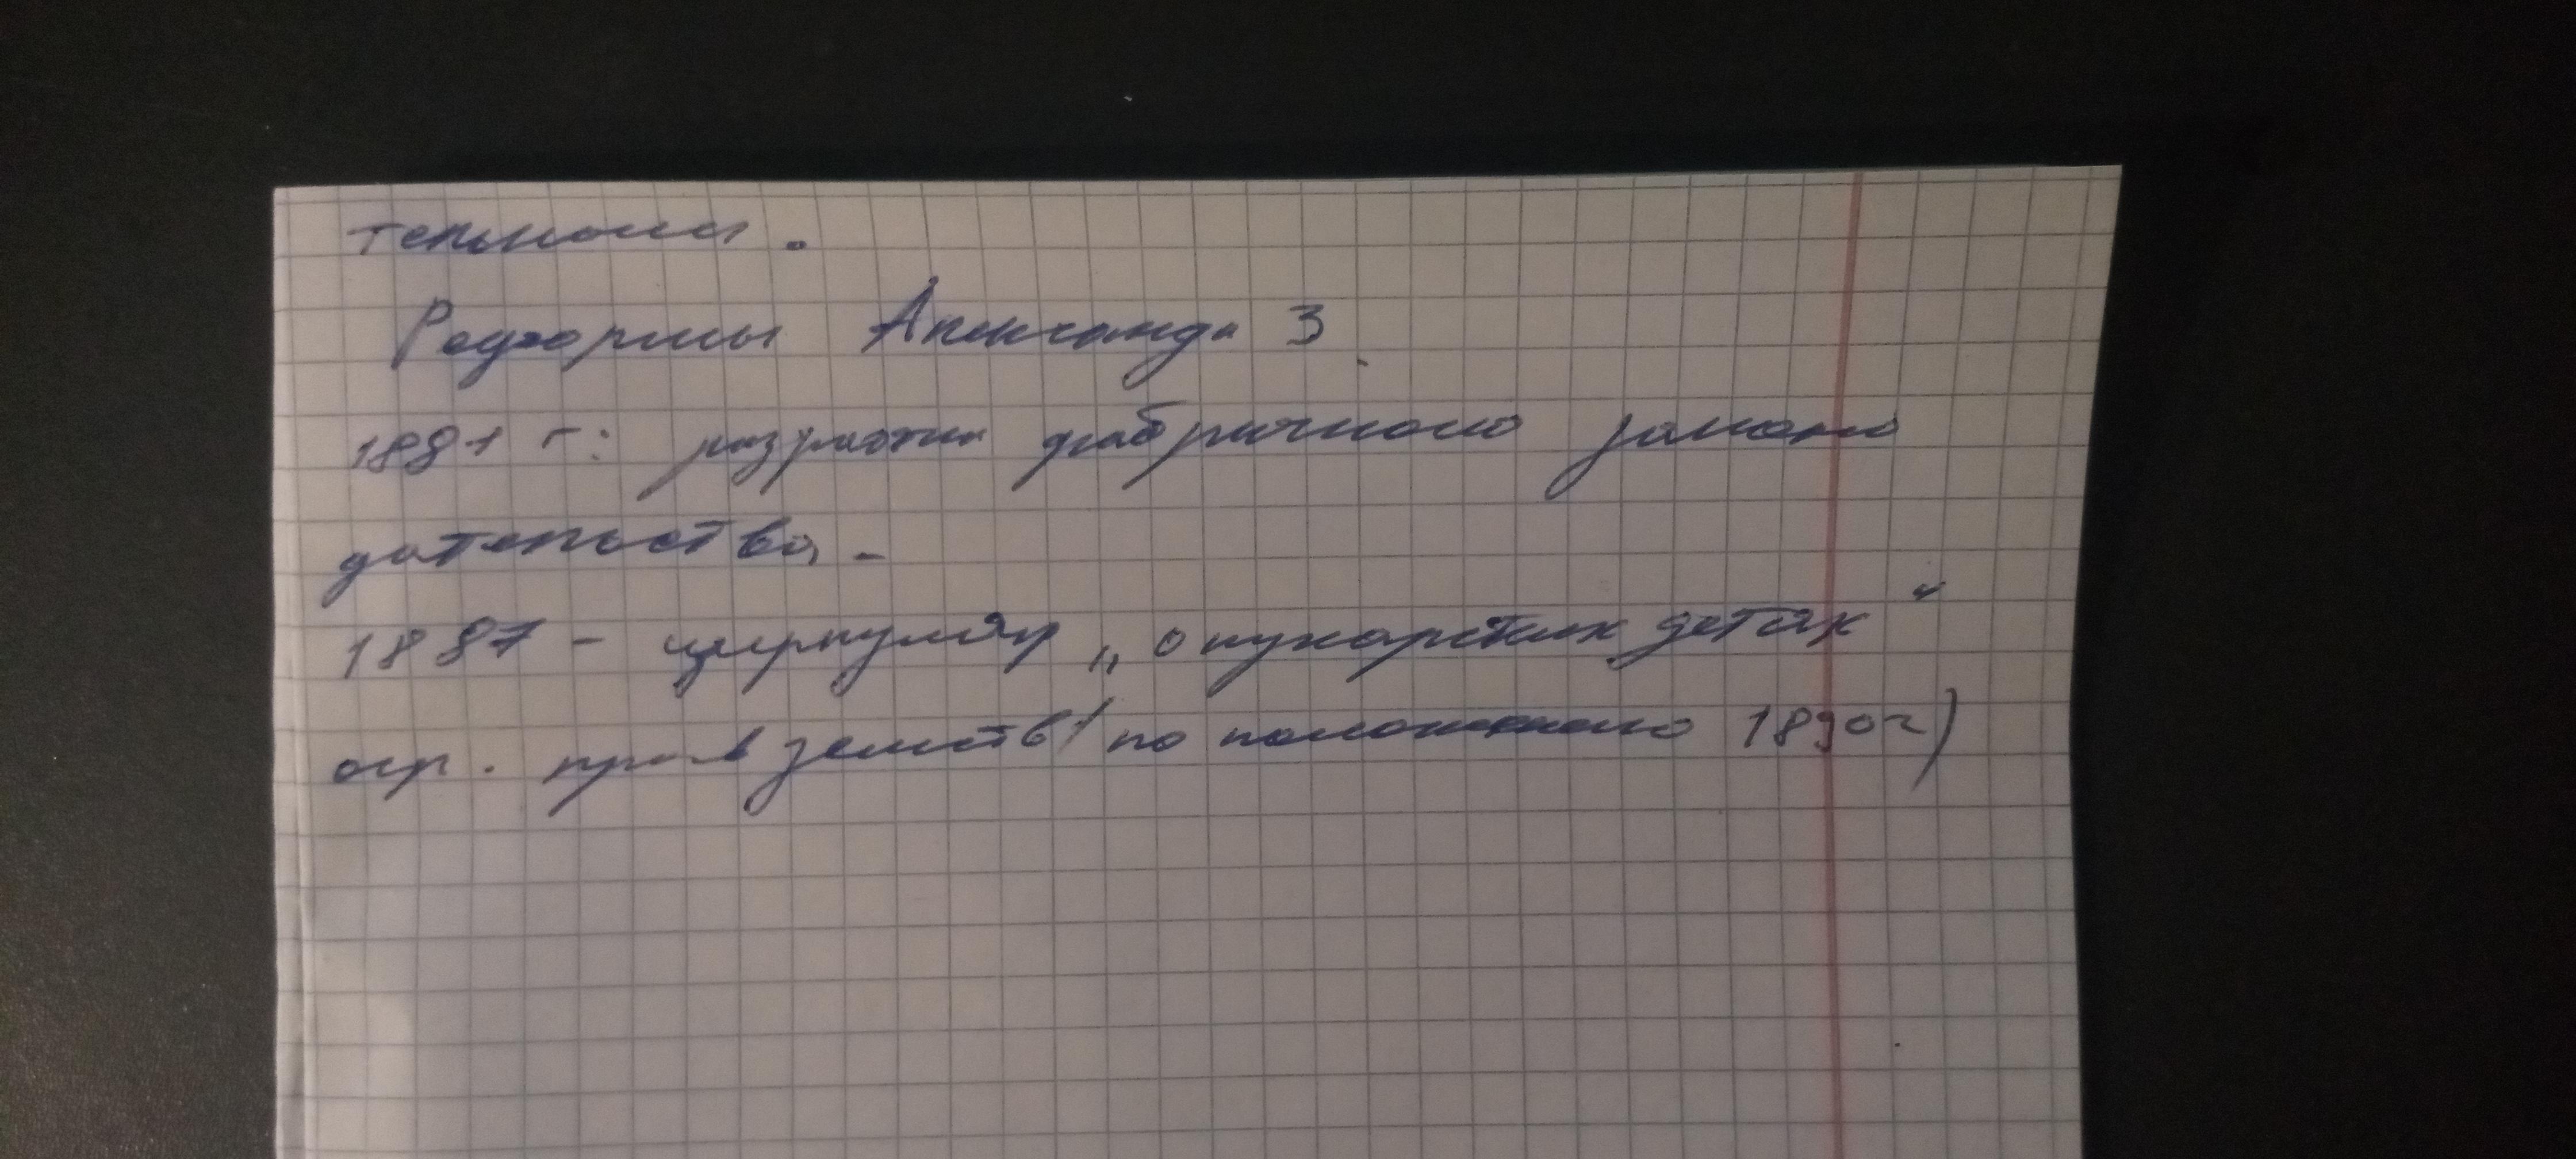 тельными.
Реформы Александра 3
1881 г: разработка фабричного законо
дательства.
1887 - циркуляр „о кухаркиных детях“
огр. прав земств (по положению 1890г)